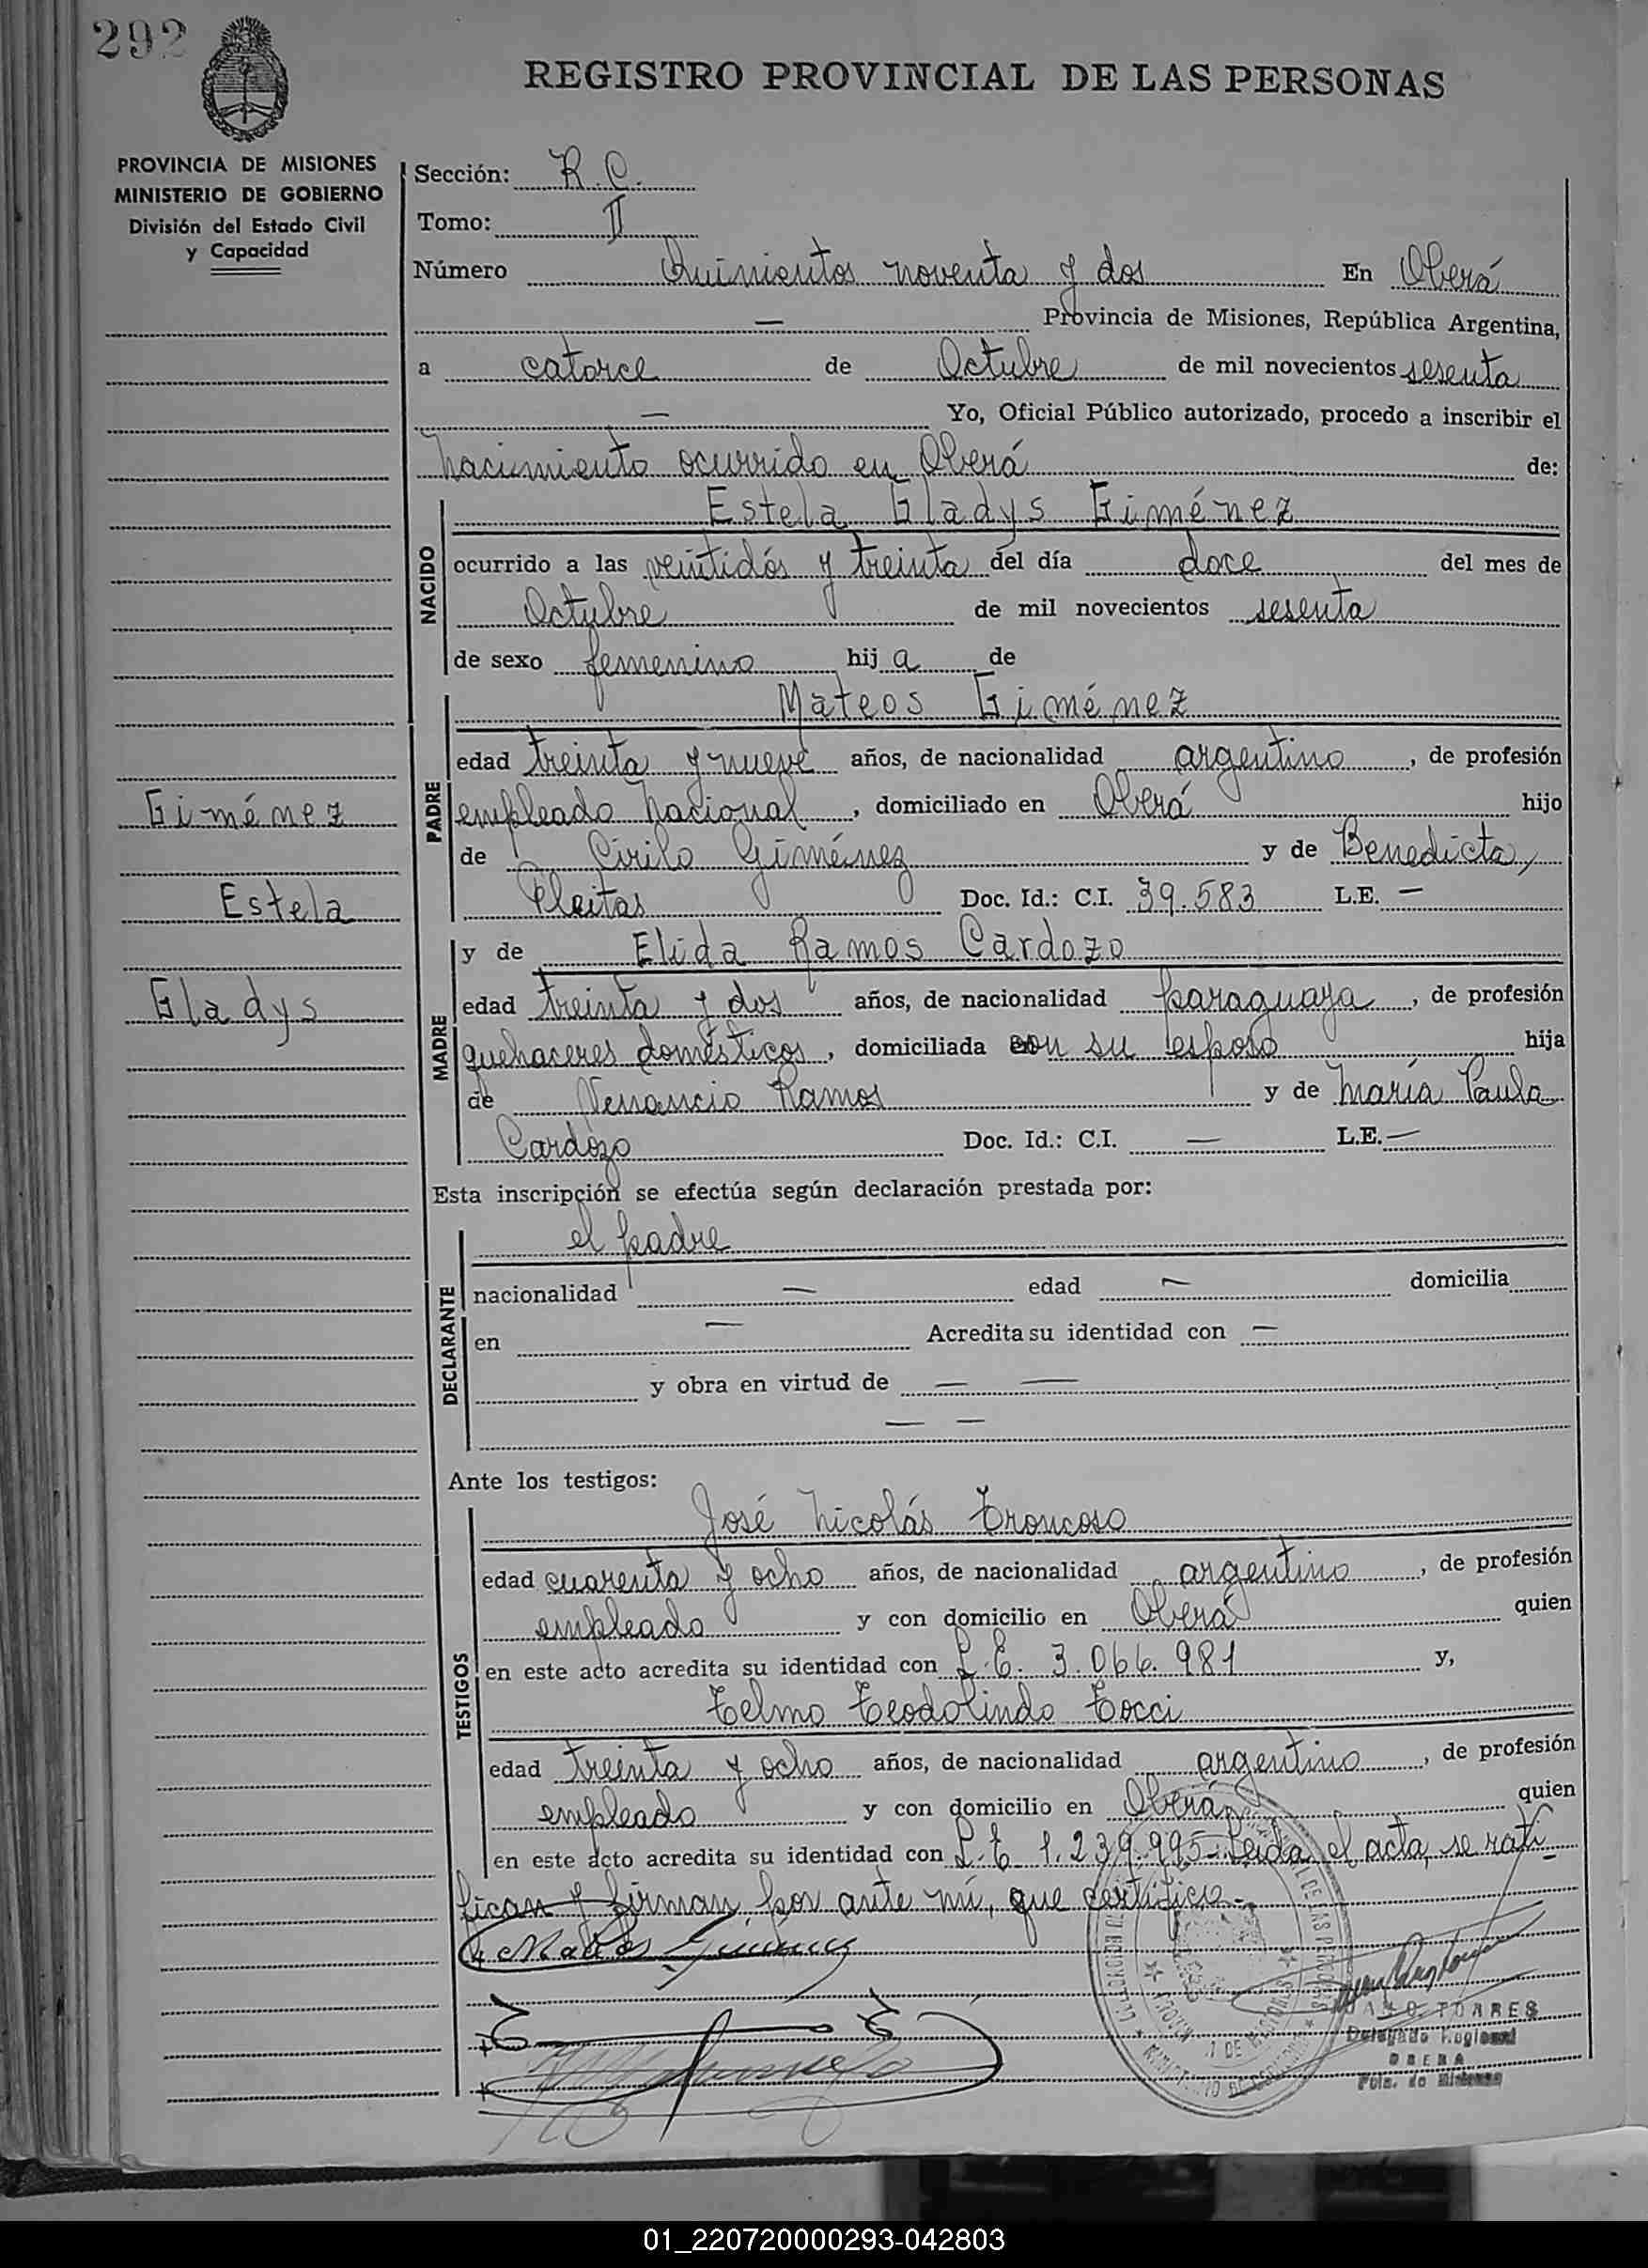 292
REGISTRO PROVINCIAL DE LAS PERSONAS
PROVINCIA DE MISIONES
MINISTERIO DE GOBIERNO
División del Estado Civil
y Capacidad
Sección: R.C.
Tomo: II
Número Quinientos noventa y dos En Oberá
— Provincia de Misiones, República Argentina,
a catorce de Octubre de mil novecientos sesenta
— Yo, Oficial Público autorizado, procedo a inscribir el
nacimiento ocurrido en Oberá de:
NACIDO
Estela Gladys Giménez
ocurrido a las veintidós y treinta del día doce del mes de
Octubre de mil novecientos sesenta
de sexo femenino hij a de
PADRE
Mateos Giménez
edad treinta y nueve años, de nacionalidad argentino, de profesión
empleado nacional, domiciliado en Oberá hijo
de Cirilo Giménez y de Benedicta,
Pleitas Doc. Id.: C.I. 39.583 L.E. —
Giménez
Estela
Gladys
MADRE
y de Elida Ramos Cardozo
edad treinta y dos años, de nacionalidad paraguaya, de profesión
quehaceres domésticos, domiciliada con su esposo hija
de Venancio Ramos y de María Paula
Cardozo Doc. Id.: C.I. — L.E. —
Esta inscripción se efectúa según declaración prestada por:
DECLARANTE
el padre
nacionalidad — edad — domicilia
en — Acredita su identidad con —
y obra en virtud de — —
— —
Ante los testigos:
TESTIGOS
José Nicolás Troncoso
edad cuarenta y ocho años, de nacionalidad argentino, de profesión
empleado y con domicilio en Oberá quien
en este acto acredita su identidad con L.E. 3.066.981 y,
Telmo Teodolindo Tocci
edad treinta y ocho años, de nacionalidad argentino, de profesión
empleado y con domicilio en Oberá, quien
en este acto acredita su identidad con L.E 1.239.995.- Leida el acta, se rati
fican y firman por ante mí, que certifico.-
TORRES
Delegado Regional
OBERA
Pcia. de Misiones
01_220720000293-042803